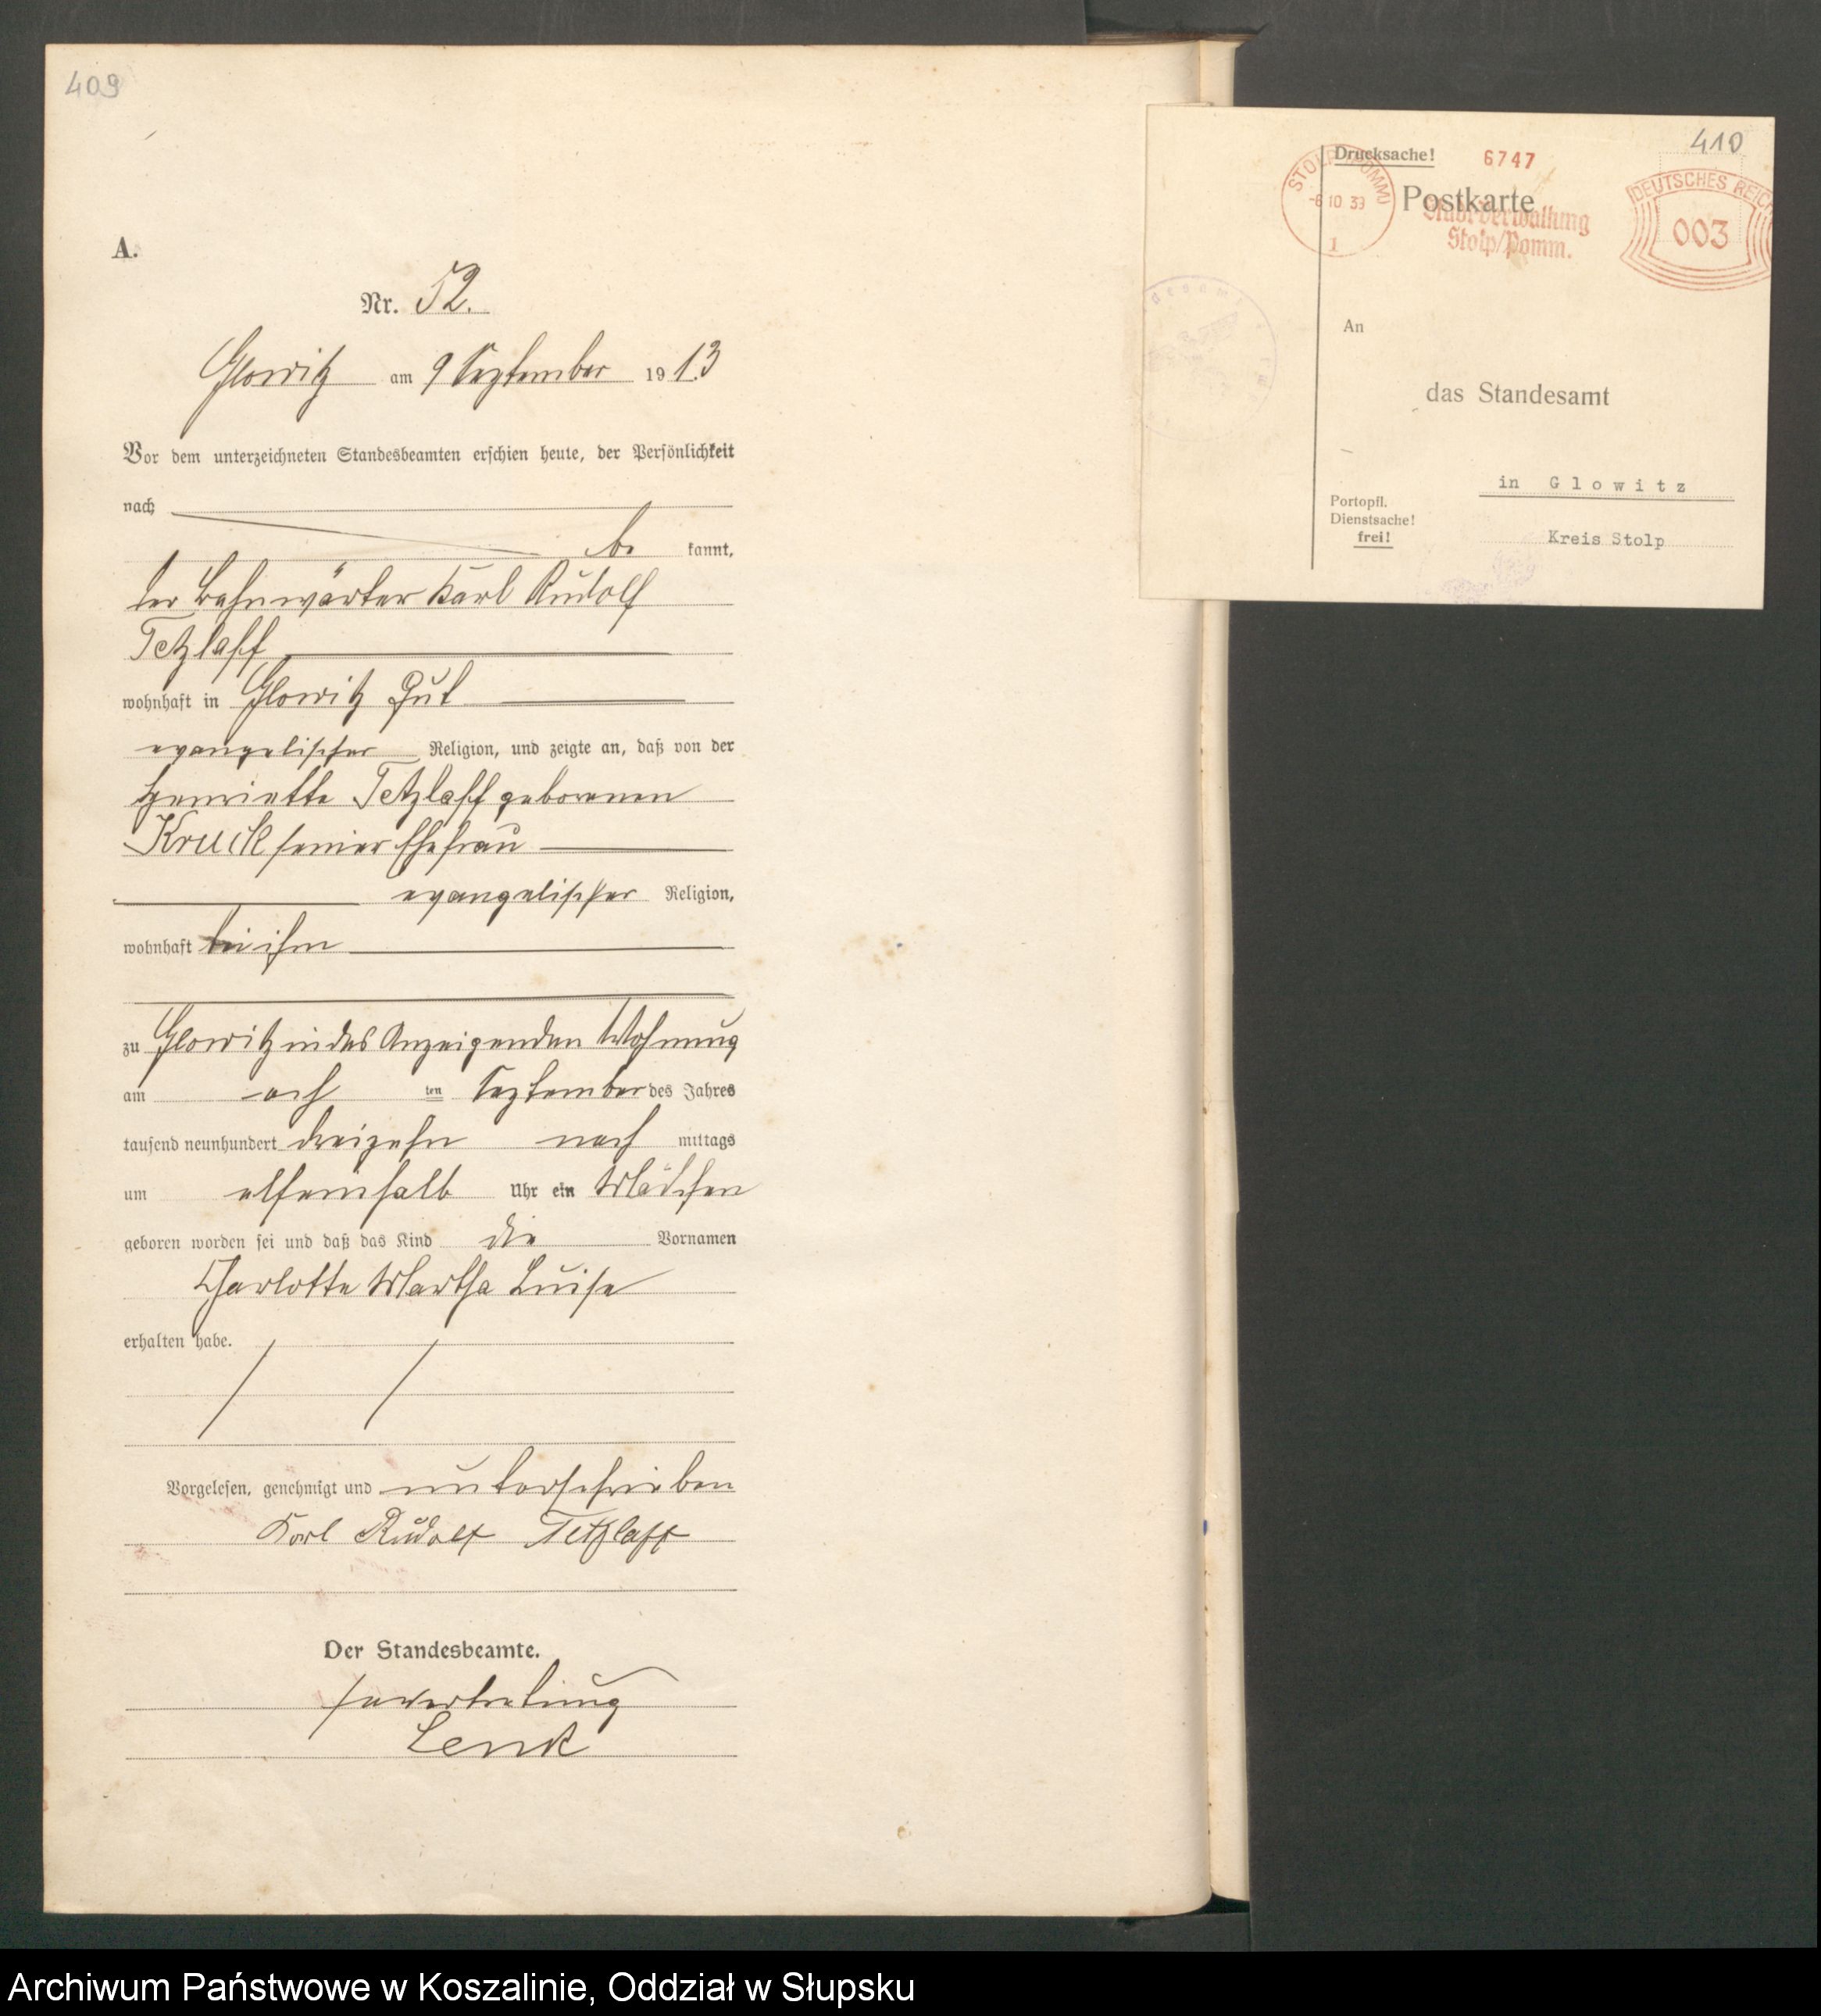 409
A.
Nr. 52.
Glowitz am 9 September 1913
Vor dem unterzeichneten Standesbeamten erschien heute, der Persönlichkeit
nach
be kannt,
der Bahnwärter Karl Rudolf
Tetzlaff
wohnhaft in Glowitz Gut
evangelischer Religion, und zeigte an, daß von der
Henriette Tetzlaff geborenen
Kruck seiner Ehefrau
evangelischer Religion,
wohnhaft bei ihm
zu Glowitz in des Anzeigenden Wohnung
am ach ten September des Jahres
tausend neunhundert dreizehn nach mittags
um elfeinhalb Uhr ein Mädchen
geboren worden sei und daß das Kind die Vornamen
Charlotte Martha Luise
erhalten habe.
Vorgelesen, genehmigt und unterschrieben
Karl Rudolf Tetzlaff
Der Standesbeamte.
In Vertretung
Lenk
410
Drucksache!
6747
STOLP (POMM)
-6.10.39
1
Postkarte
Stadtverwaltung
Stolp/Pomm.
DEUTSCHES REICH
003
An
das Standesamt
in Glowitz
Portopfl.
Dienstsache!
frei!
Kreis Stolp
Archiwum Państwowe w Koszalinie, Oddział w Słupsku